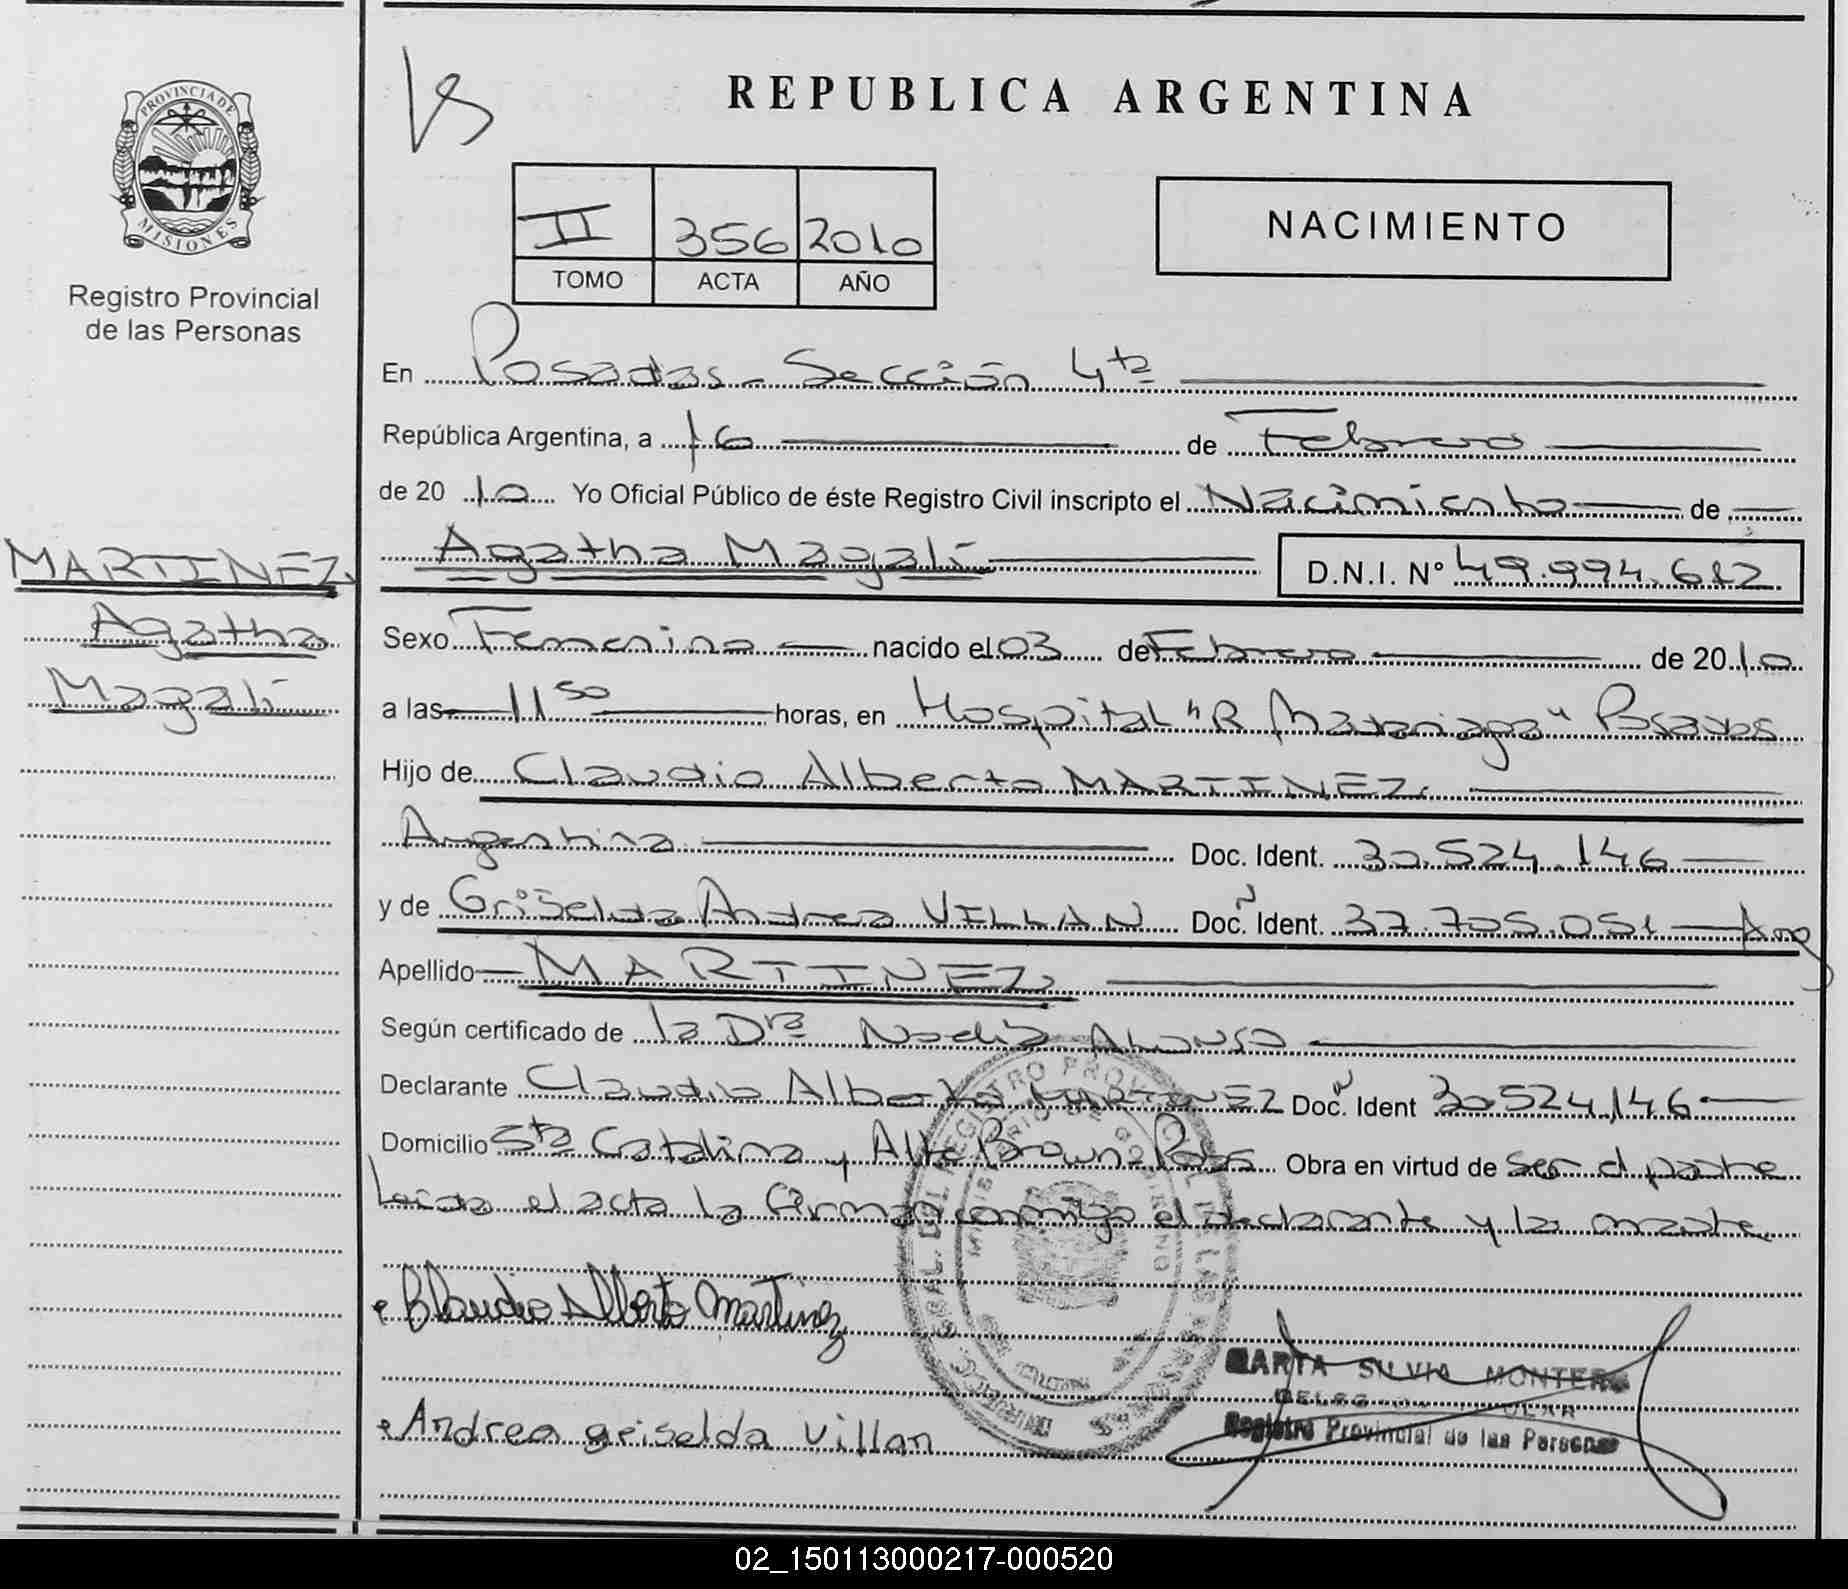 PROVINCIA DE
MISIONES
Registro Provincial
de las Personas
MARTINEZ
Agatha
Magalí
REPUBLICA ARGENTINA
II 356 2010
TOMO ACTA AÑO
NACIMIENTO
En Posadas - Sección 4ta
República Argentina, a 16 de Febrero
de 2010 Yo Oficial Público de éste Registro Civil inscripto el Nacimiento de
Agatha Magalí D.N.I. Nº 49.994.612
Sexo Femenino nacido el 03 de Febrero de 2010
a las 11 50 horas, en Hospital "R Madariaga" Posadas
Hijo de Claudio Alberto MARTINEZ.
Argentina Doc. Ident. 30.524.146
y de Griselda Andrea VILLAN Doc. Ident. 37.705.051 Arg
Apellido MARTINEZ
Según certificado de la Dra Nadia Alonso
Declarante Claudio Alberto MARTINEZ Doc. Ident 30.524.146
Domicilio Sta Catalina y Alte Brown - Pdas Obra en virtud de ser el padre
Leida el acta la firman conmigo el declarante y la madre
Claudio Alberto Martinez
MARTA SILVIA MONTERO
Registro Provincial de las Personas
Andrea griselda Villan
02_150113000217-000520